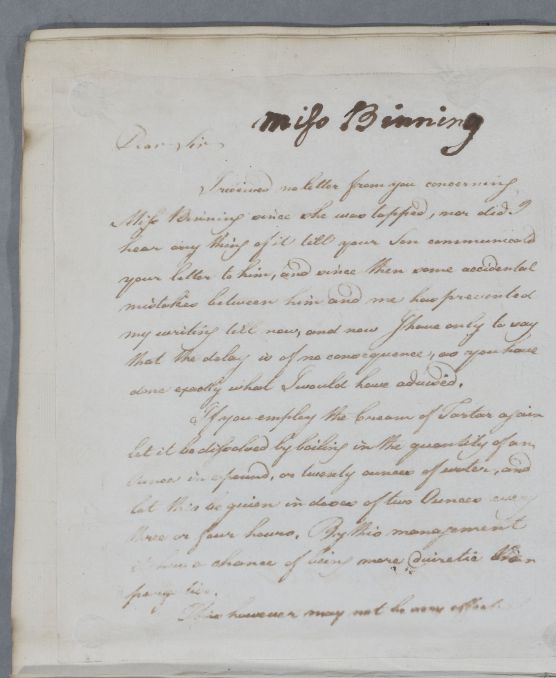 Miss Binning
Dear Sir
I received no letter from you concerning
Miss Binning since she was tapped, nor did I
hear any thing of it till your Son communicated
your letter to him, and since then some accidental
mistakes between him and me has prevented
my writing till now, and now I have only to say
that the delay is of no consequence, as you have
done exactly what I would have advised.
If you employ the Cream of Tartar again
let it be dissolved by boiling in the quantity of an
Ounce in a pound, or twenty ounces of water, and
let this be given in doses of two Ounces every
three or four hours. By this management
it has a chance of being more diuretic than
purgative.
This however may not be very effect